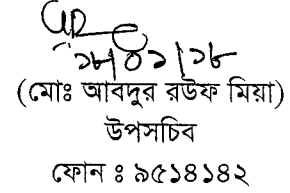 ১৮/০১/১৮
(মোঃ আবদুর রউফ মিয়া)
উপসচিব
ফোন ঃ ৯৫১৪১৪২